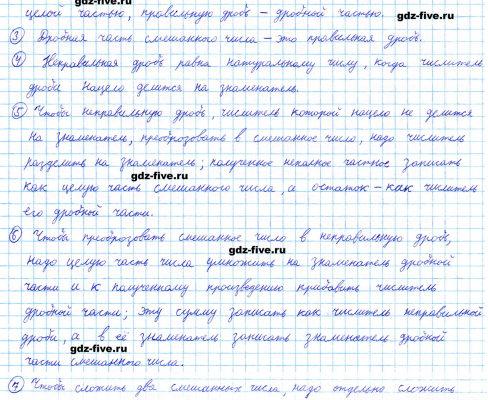 целой частью, правильную дробь – дробной частью.
gdz-five.ru
③ Дробная часть смешанного числа – это правильная дробь.
gdz-five.ru
④ Неправильная дробь равна натуральному числу, когда числитель
дроби нацело делится на знаменатель.
gdz-five.ru
⑤ Чтобы неправильную дробь, числитель которой нацело не делится
на знаменатель, преобразовать в смешанное число, надо числитель
gdz-five.ru
разделить на знаменатель; полученное неполное частное записать
как целую часть смешанного числа, а остаток – как числитель
его дробной части.
gdz-five.ru
⑥ Чтобы преобразовать смешанное число в неправильную дробь,
gdz-five.ru
надо целую часть числа умножить на знаменатель дробной
части и к полученному произведению прибавить числитель
gdz-five.ru
дробной части; эту сумму записать как числитель неправильной
дроби, а в её знаменатель записать знаменатель дробной
gdz-five.ru
части смешанного числа.
gdz-five.ru
⑦ Чтобы сложить два смешанных числа, надо отдельно сложить